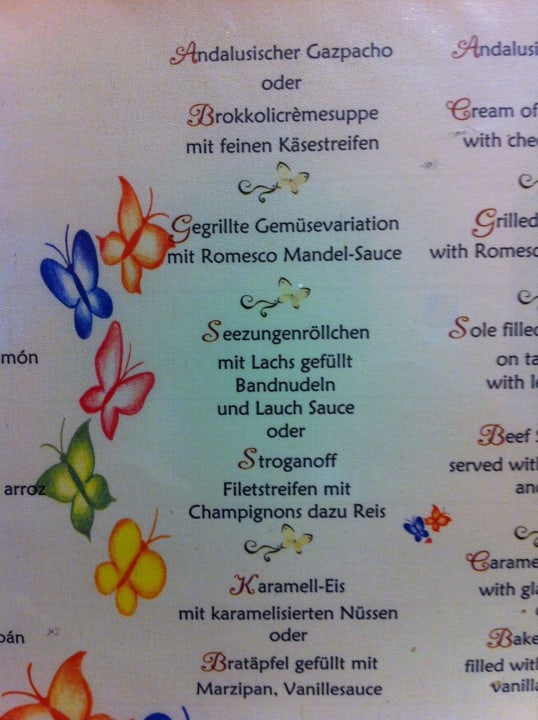 Andalusischer Gazpacho
oder
Brokkolicrèmesuppe
mit feinen Käsestreifen
Gegrillte Gemüsevariation
mit Romesco Mandel-Sauce
Seezungenröllchen
mit Lachs gefüllt
Bandnudeln
und Lauch Sauce
oder
Stroganoff
Filetstreifen mit
Champignons dazu Reis
Karamell-Eis
mit karamelisierten Nüssen
oder
Bratäpfel gefüllt mit
Marzipan, Vanillesauce
arroz
Cream of
with
Grilled
with
Sole
on
with
Beef
served
with
Caramel
with
filled